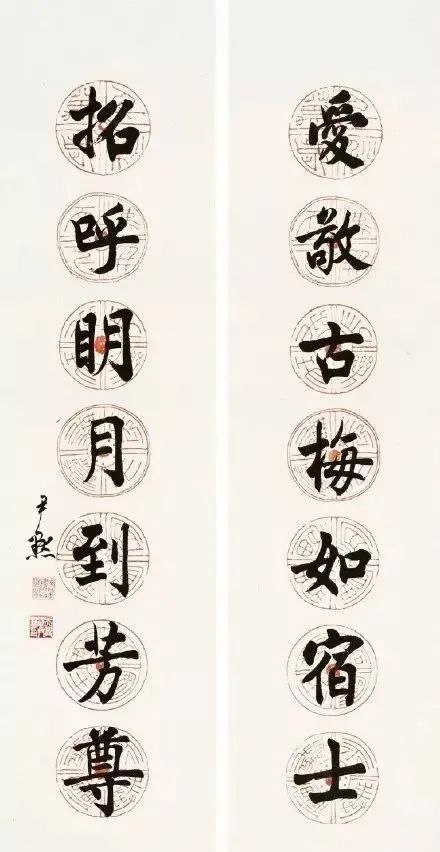 愛敬古梅如宿士
招呼眀月到芳尊
尹默